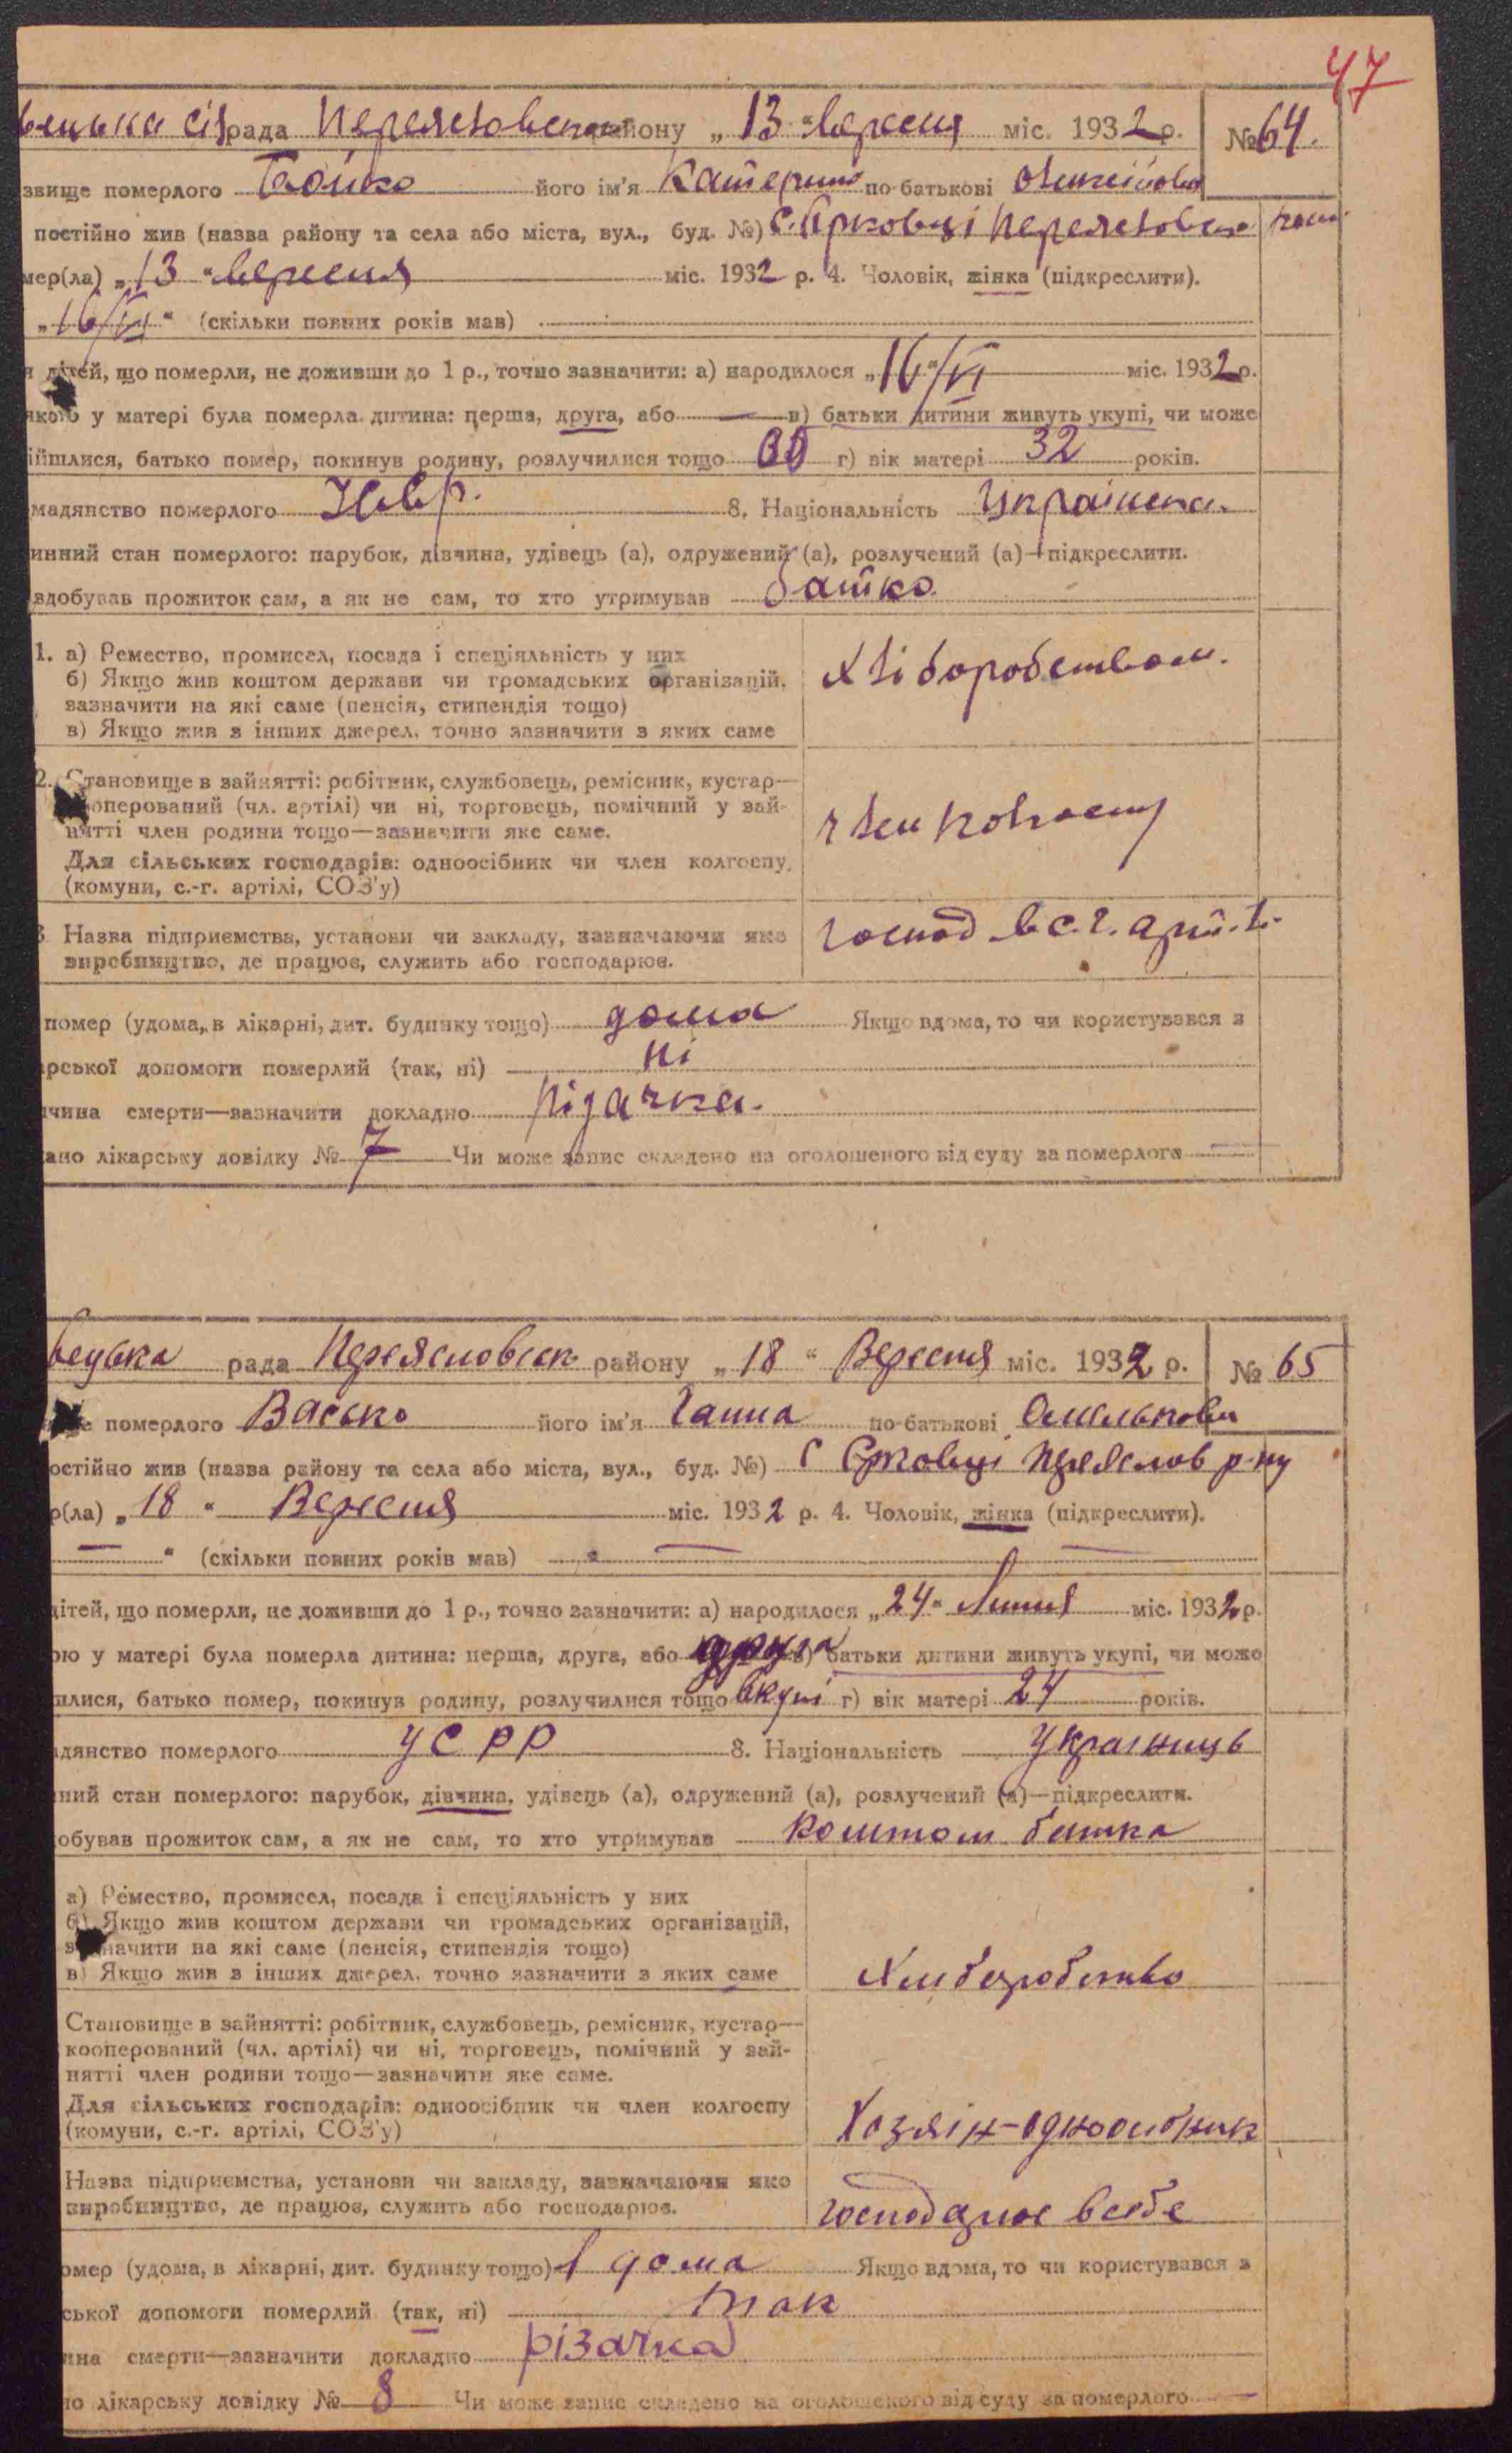 47
вецька сіл рада Переяславського району „13“ вересня міс. 1932 р. № 64.
звище померлого Бойко його ім'я Катерина по-батькові
постійно жив (назва району та села або міста, вул., буд. №) с. Єрковці Переяславськ
мер(ла) „13“ вересня міс. 1932 р. 4. Чоловік, жінка (підкреслити).
„16/VI“ (скільки повних років мав)
я дітей, що померли, не доживши до 1 р., точно зазначити: а) народилося „16“/VI міс. 1932 р.
якою у матері була померла дитина: перша, друга, або — в) батьки дитини живуть укупі, чи може
ійшлися, батько помер, покинув родину, розлучилися тощо г) вік матері 32 років.
мадянство померлого 8. Національність Українка.
инний стан померлого: парубок, дівчина, удівець (а), одружений (а), розлучений (а)—підкреслити.
здобував прожиток сам, а як не сам, то хто утримував батко
1. а) Ремество, промисел, посада і спеціяльність у них
б) Якщо жив коштом держави чи громадських організацій,
зазначити на які саме (пенсія, стипендія тощо)
в) Якщо жив з інших джерел, точно зазначити з яких саме
хліборобством.
2. Становище в зайнятті: робітник, службовець, ремісник, кустар—
кооперований (чл. артілі) чи ні, торговець, помічний у зай-
нятті член родини тощо—зазначити яке саме.
Для сільських господарів: одноосібник чи член колгоспу,
(комуни, с.-г. артілі, СОЗ'у)
член колгоспу
3 Назва підприємства, установи чи закладу, зазначаючи яке
виробництво, де працює, служить або господарює.
господ в с.г. артілі
помер (удома, в лікарні, дит. будинку тощо) дома Якщо вдома, то чи користувався з
арської допомоги померлий (так, ні) ні
ичина смерти—зазначити докладно різачка.
ано лікарську довідку № 7 Чи може запис складено на оголошеного від суду за померлого —
вецька рада Переяславськ району „18“ Вересня міс. 1932 р. № 65
е померлого Васько його ім'я Ганна по-батькові Омельковн
остійно жив (назва району та села або міста, вул., буд. №) с Єрковці Переяслав р-ну
р(ла) „18“ Вересня міс. 1932 р. 4. Чоловік, жінка (підкреслити).
—“ (скільки повних років мав) —
дітей, що померли, не доживши до 1 р., точно зазначити: а) народилося „24“ Липня міс. 1932 р.
ою у матері була померла дитина: перша, друга, або друга в) батьки дитини живуть укупі, чи може
шлися, батько помер, покинув родину, розлучилися тощо вкупі г) вік матері 24 років.
адянство померлого УСРР 8. Національність Українець
ний стан померлого: парубок, дівчина, удівець (а), одружений (а), розлучений (а)—підкреслити.
обував прожиток сам, а як не сам, то хто утримував коштом батка
а) Ремество, промисел, посада і спеціяльність у них
б) Якщо жив коштом держави чи громадських організацій,
зазначити на які саме (пенсія, стипендія тощо)
в) Якщо жив з інших джерел, точно зазначити з яких саме
Хлиборобство
Становище в зайнятті: робітник, службовець, ремісник, кустар—
кооперований (чл. артілі) чи ні, торговець, помічний у зай-
нятті член родини тощо—зазначити яке саме.
Для сільських господарів: одноосібник чи член колгоспу
(комуни, с.-г. артілі, СОЗ'у)
Хозяін-одноосібник
Назва підприємства, установи чи закладу, зазначаючи яке
виробництво, де працює, служить або господарює.
господарює в себе
омер (удома, в лікарні, дит. будинку тощо) дома Якщо вдома, то чи користувався з
ської допомоги померлий (так, ні) так
ина смерти—зазначити докладно різачка
но лікарську довідку № 8 Чи може запис складено на оголошеного від суду за померлого —